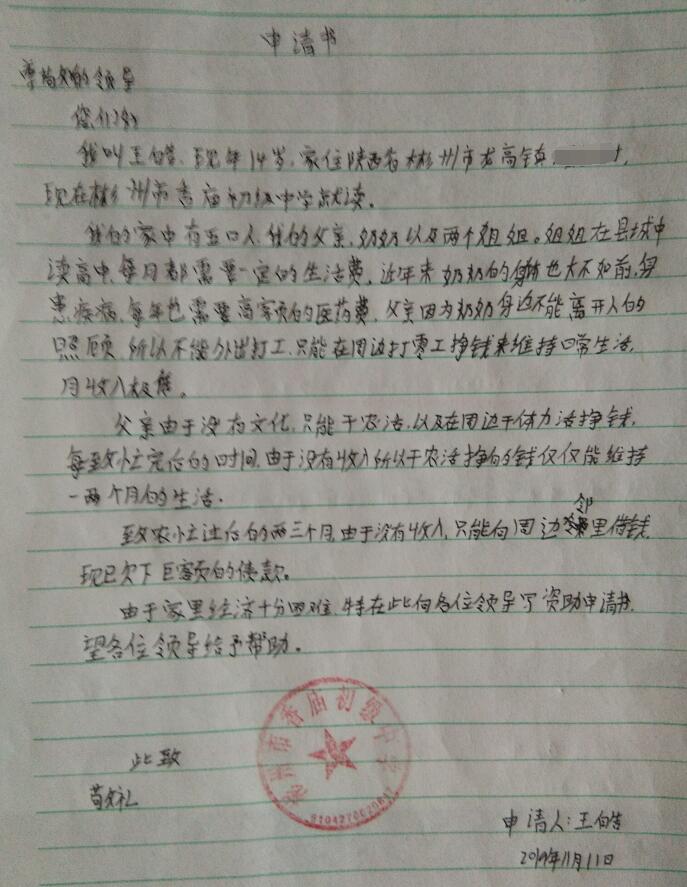 申请书
尊敬的领导
您们好
我叫王伯皓、现年14岁、家住陕西省彬州市龙高镇 村,
现在彬州市香庙初级中学就读。
我的家中有五口人、我的父亲,奶奶以及两个姐姐。姐姐在县城中
读高中、每月都需要一定的生活费,近年来奶奶的身体也大不如前,身
患疾病、每年也需要高额的医药费、父亲因为奶奶身边不能离开人的
照顾、所以不能外出打工、只能在周边打零工挣钱来维持日常生活,
月收入极
父亲由于没有文化、只能干农活、以及在周边干体力活挣钱,
每致忙完后的时间、由于没有收入所以干农活挣的钱仅仅能维持
一两个月的生活.
邻
至致农忙过后的两三个月、由于没有收入、只能向周边里借钱,
现已欠下巨额的债款。
由于家里经济十分困难、特在此向各位领导写资助申请书,
望各位领导给予帮助。
彬州市香庙初级中学
此致
敬礼
申请人:王伯皓
2019年11月11日